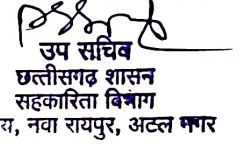 उप सचिव
छत्तीसगढ़ शासन
सहकारिता विभाग
य, नवा रायपुर, अटल नगर